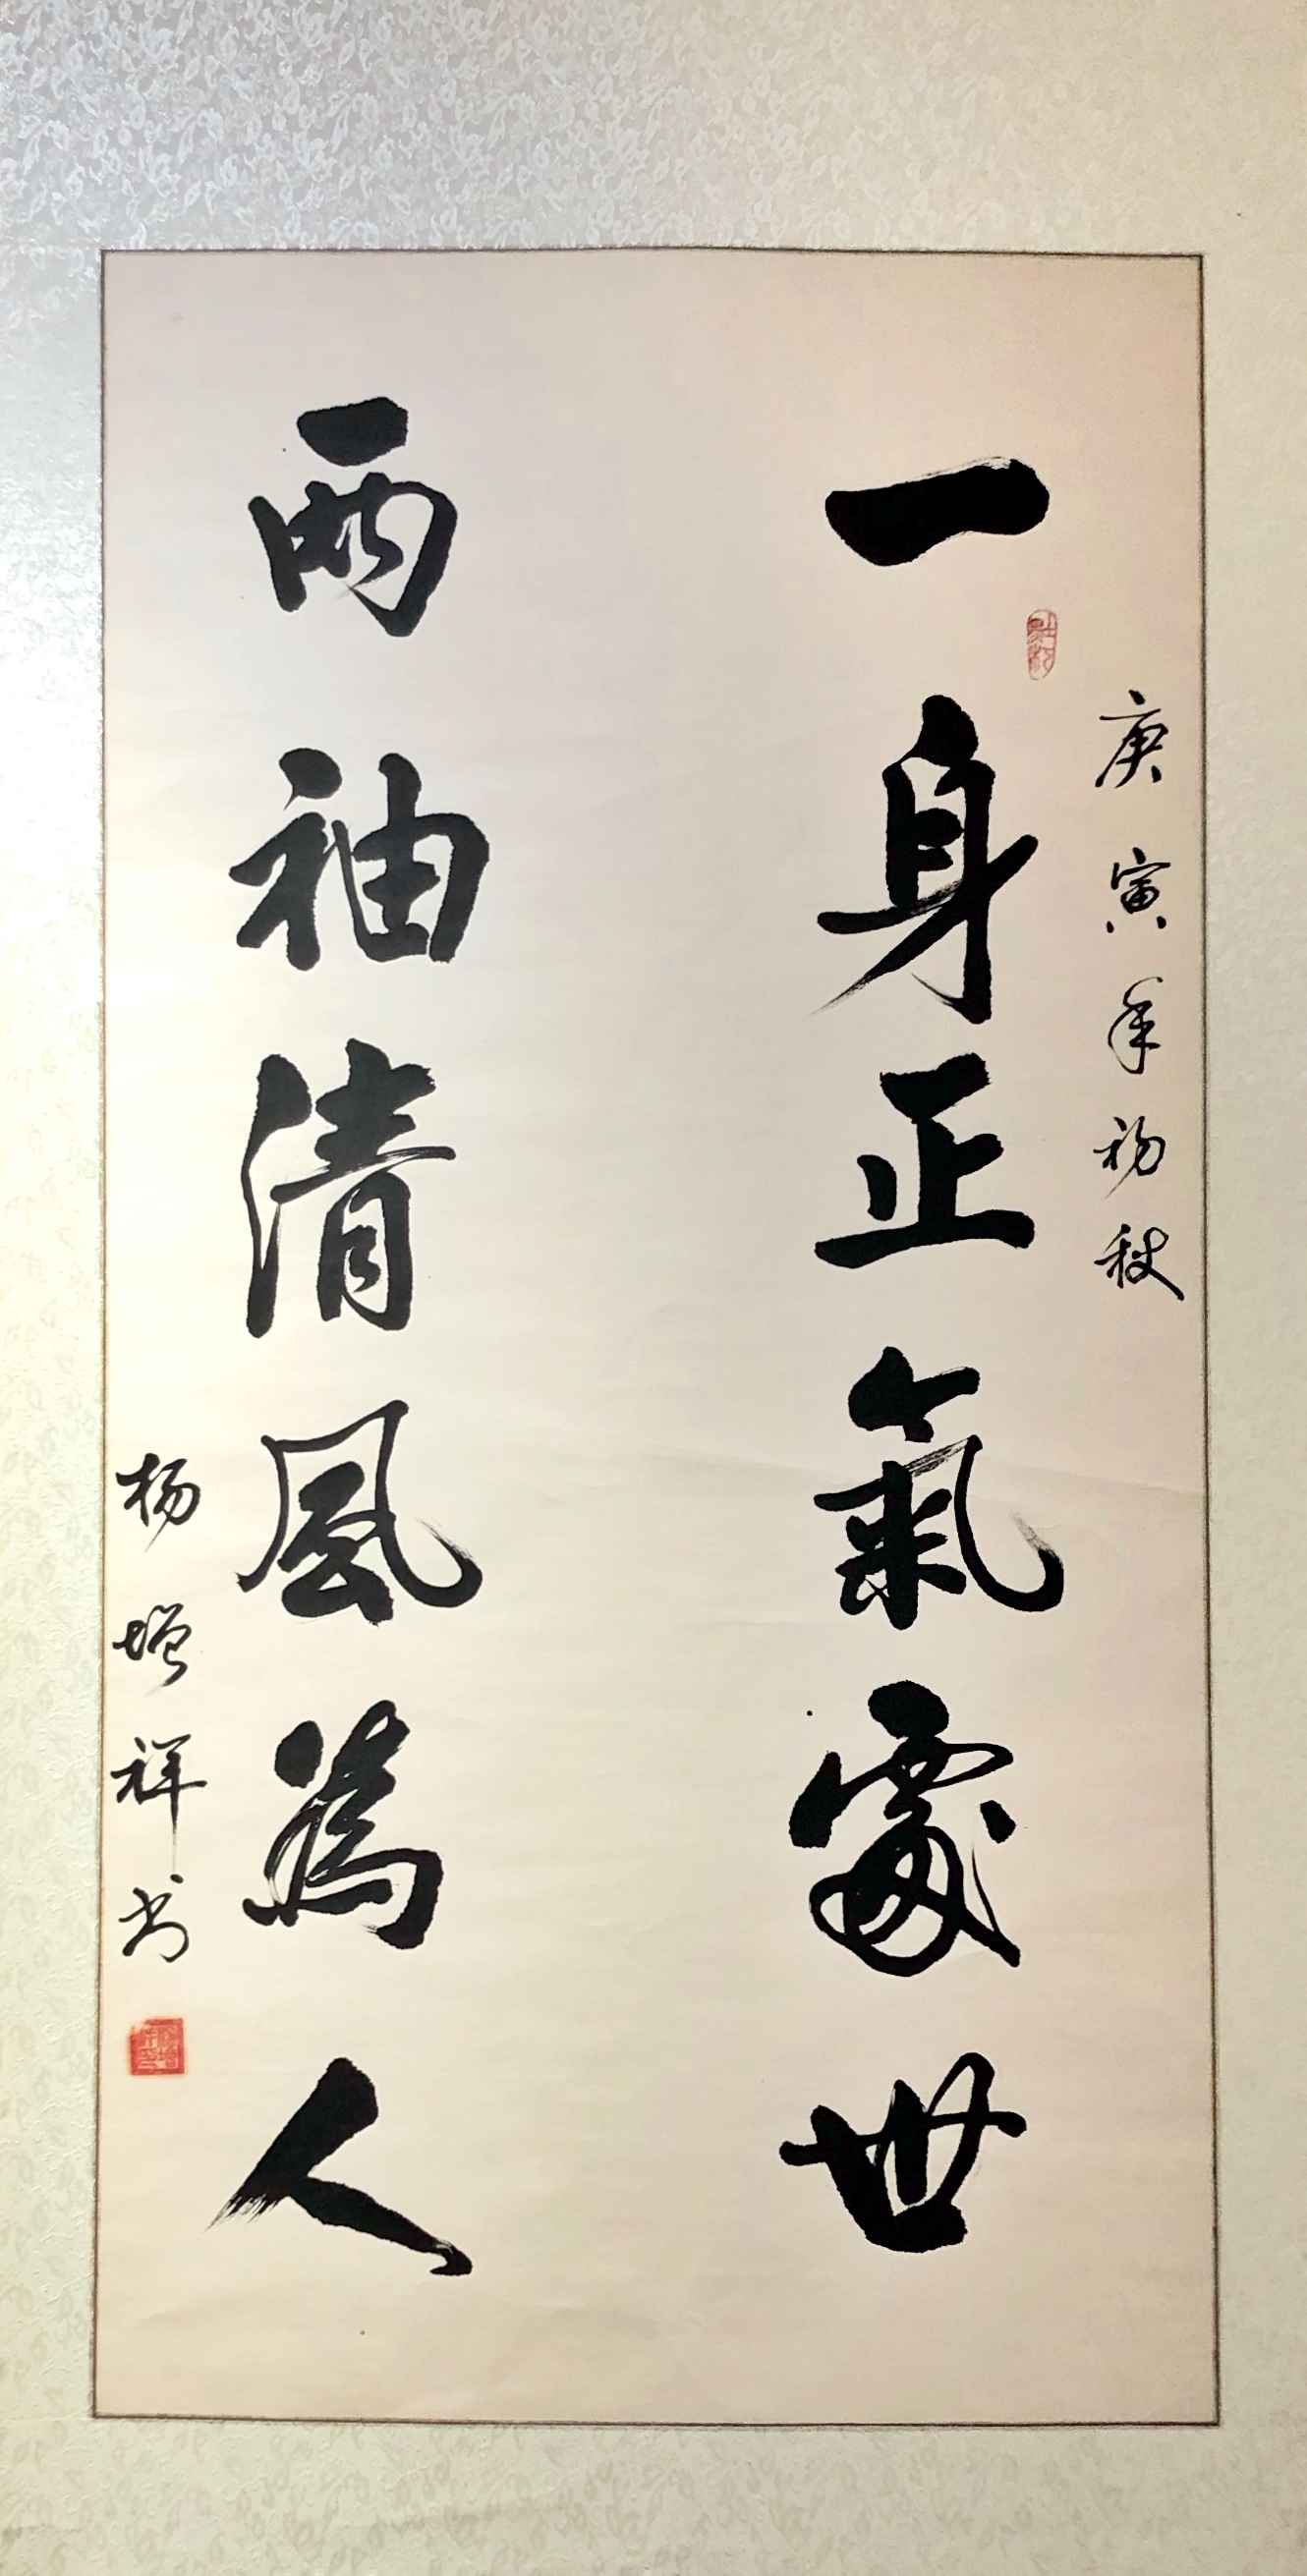 庚寅年初秋
一身正氣處世
兩袖清風為人
杨增祥书